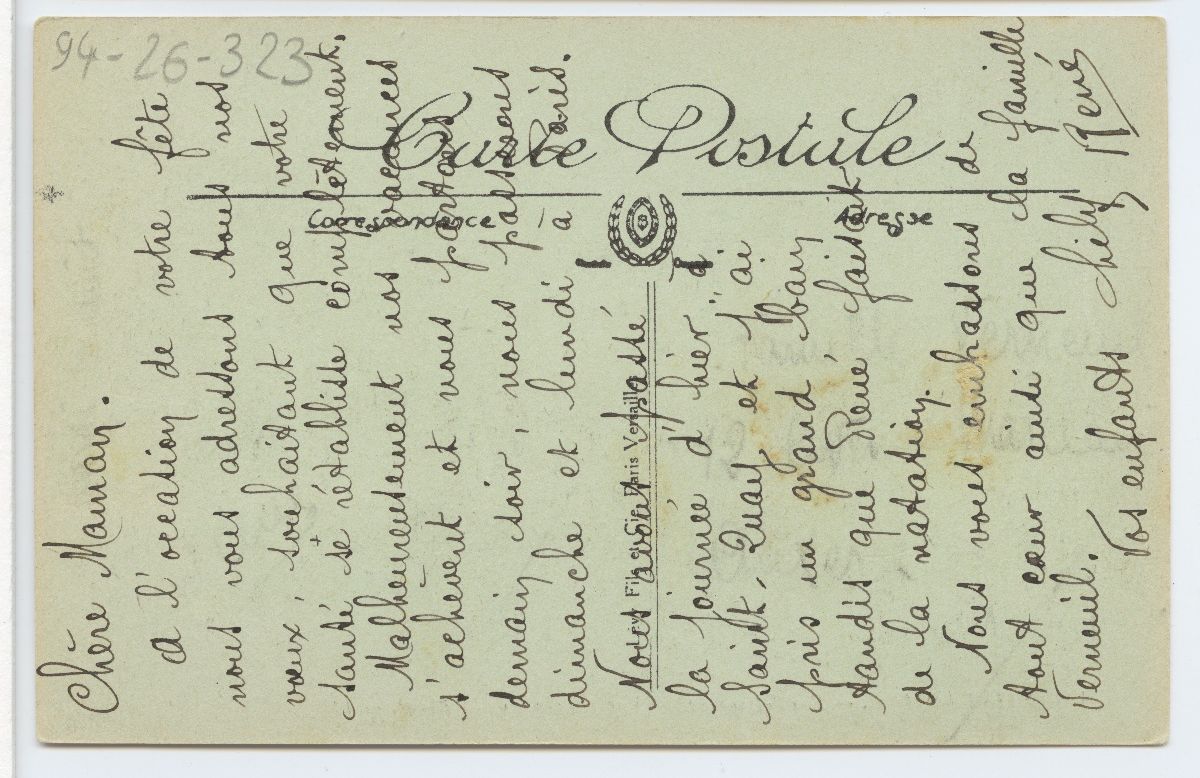 94-26-323
Carte Postale
Correspondance
Adresse
Fils & Cie, Paris Versailles
Chère Maman.
A l'occasion de votre fête
nous vous adressons tous nos
vœux, souhaitant que votre
santé se rétablisse complètement.
Malheureusement nos vacances
s'achèvent et nous partons
demain soir, nous passerons
dimanche et lundi à Paris.
Nous avons passé
la journée d'hier à
Saint. Quay et j'ai
pris un grand bain
tandis que René faisait
de la natation.
Nous vous embrassons de
tout cœur ainsi que la famille
Verneuil.
Vos enfants
René